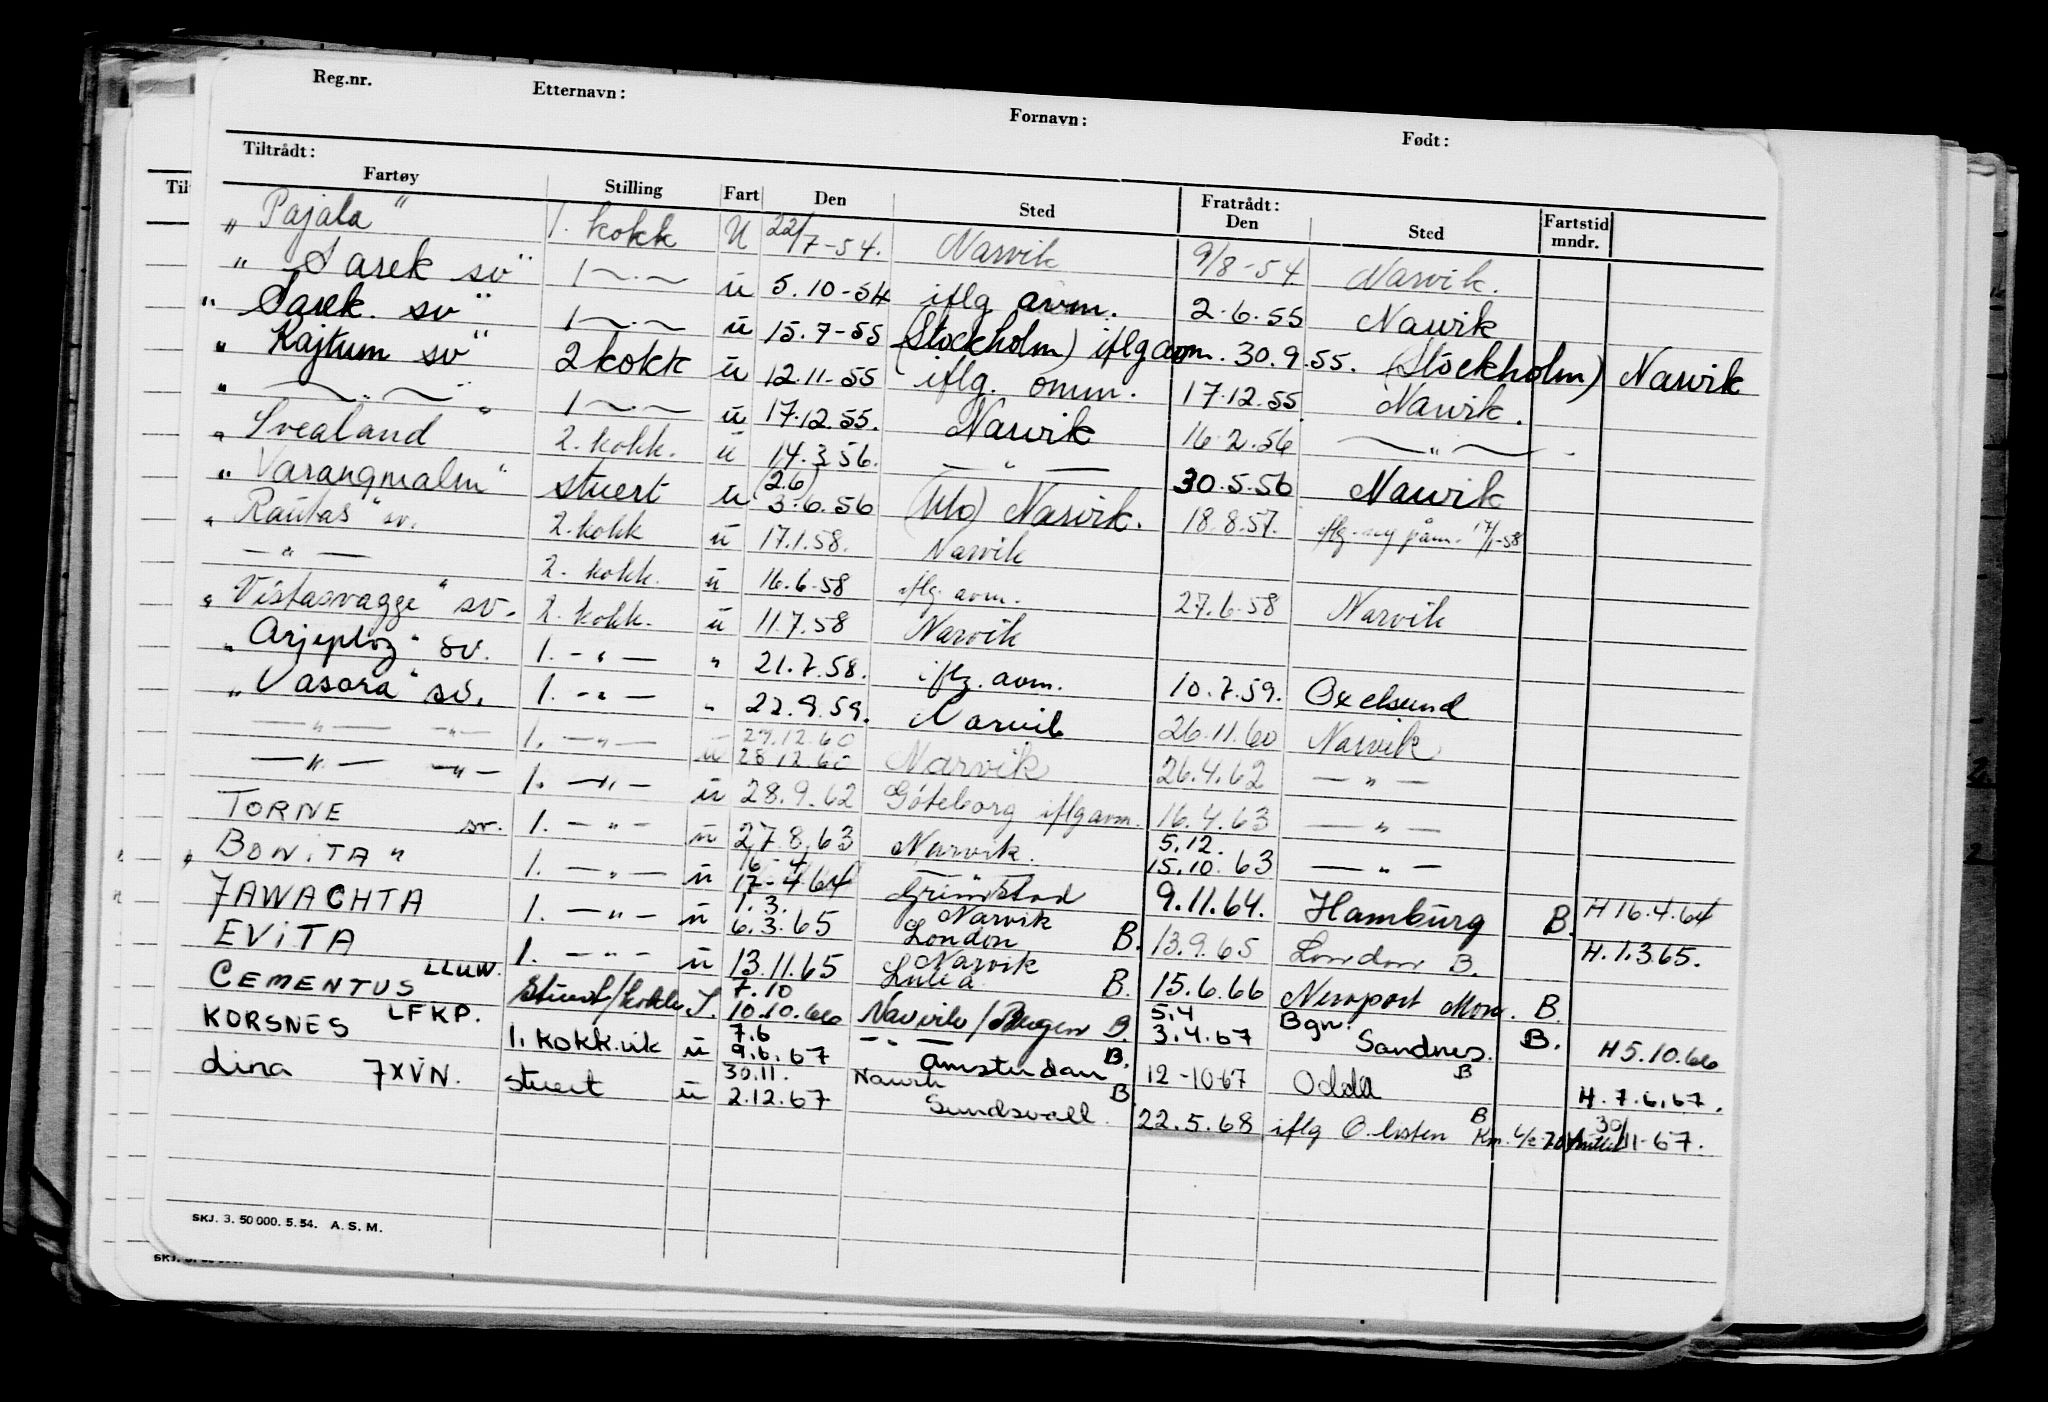 Reg.nr. Etternavn: Fornavn: Født:
Tiltrådt: Fratrådt:
Fartøy Stilling Fart Den Sted Den Sted Fartstid mndr.
„ Pajala " 1. kokk U 22/7-54. Narvik 9/8-54. Narvik.
„ Sarek sv " 1 ~ . ~ u 5.10-54 iflg avm. 2.6.55 Narvik
„ Sarek. sv " 1 ~ . ~ u 15.7-55 (Stockholm) iflg avm. 30.9.55. (Stockholm) Narvik
„ Kajtum sv " 2 kokk u 12.11-55 iflg. omm. 17.12.55 Narvik.
„ ~ . ~ " 1 ~ . ~ u 17.12.55. Narvik 16.2.56 ~ " ~
„ Svealand " 2. kokk. u 14.3.56. — " — 30.5.56 Narvik
„ Varangmalm " stuert u (2.6) 3.6.56 (Mo) Narvik. 18.8.57. iflg. ny påm. 17/1-58
„ Rautas " sv. 2. kokk u 17.1.58. Narvik
— " — 2. kokk. u 16.6.58 iflg. avm. 27.6.58 Narvik
„ Vistasvagge " sv. 2. kokk. u 11.7.58 Narvik
„ Arjeplog " sv. 1. — " — " 21.7.58. iflg. avm. 10.7.59. Oxelsund
„ Vasara " sv. 1. — " — " 22.9.59. Narvik 26.11.60 Narvik
— " — — " — 1. — " — u 27.12.60 28.12.60 Narvik 26.4.62 — " —
— " — — " — 1. — " — u 28.9.62 Göteborg iflg avm. 16.4.63 — " —
TORNE sv. 1. — " — u 27.8.63 Narvik. 5.12. 15.10.63 — " —
„ BONiTA " 1. — " — u 16-4 17-4 64 Grimstad 9.11.64. Hamburg B. H 16.4.64
JAWACHTA 1. — " — u 1.3. 6.3.65 Narvik London B. 13.9.65 London B. H. 1.3.65.
EViTA LLUW. 1. — " — u 13.11.65 Narvik Luleå B. 15.6.66 Newport Mon. B.
CEMENTUS LFKP. Stuert/kokk I. 7.10 10.10.66 Narvik/Bergen B. 5.4 3.4.67 Bgn. Sandnes. B. H 5.10.66
KORSNES 1. kokk.vik u 7.6 9.6.67 — " — Amsterdam B. 12-10-67 Odda B H. 7.6.67.
Lina JXVN. stuert u 30.11. 2.12.67 Narvik Sundsvall B. 22.5.68 iflg O.listen B 30/11-67.
SKJ. 3. 50 000. 5. 54. A. S. M.